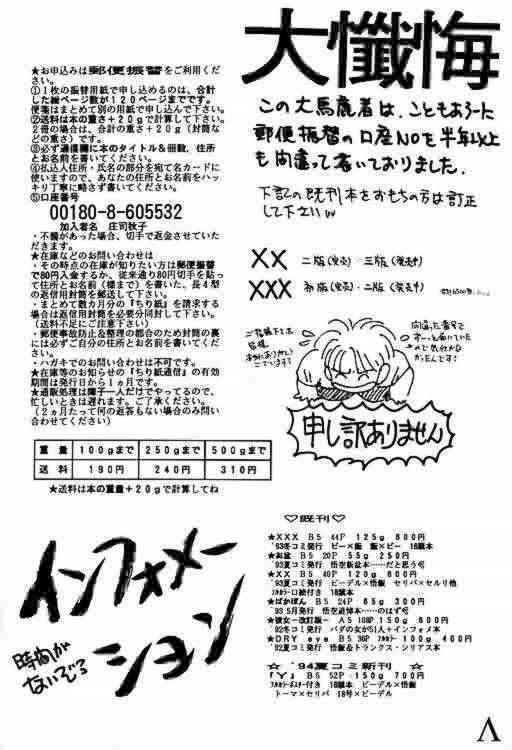 ★お申込みは郵便振替をご利用くだ
さい。
①1枚の振替用紙で申し込めるのは、合計
した総ページ数が120ページまでです。
便箋はまとめて別の用紙で申し込み下さい。
②送料は本の重さ+20gで計算して下さい。
2冊の場合は、合計の重さ+20g(封筒な
どの重さ)です。
③必ず通信欄に本のタイトル&冊数、住所
とお名前を書いてください。
④払込人住所・氏名の部分を宛て名カードに
使いますので、あなたの住所とお名前をハッ
キリ丁寧に略さず書いてください。
⑤口座番号
00180-8-605532
加入者名 庄司秋子
・不備があった場合、切手で返金させていた
だきます。
★在庫などのお問い合わせは
・その時点の在庫が知りたい方は郵便振替
で80円入金するか、従来通り80円切手を貼っ
て住所とお名前(様まで)を書いた、長4型
の返信用封筒を郵送して下さい。
・まとめて数カ月分の「ちり紙」を請求する
場合は返信用封筒を必要分同封して下さい。
(送料不足にご注意下さい)
・郵便事故防止&整理の都合のため封筒の裏
には必ずご自分の住所とお名前を書いてくだ
さい。
・ハガキでのお問い合わせは不可です。
★在庫等のお知らせの『ちり紙通信』の有効
期間は発行日から1ヵ月です。
★通販処理は障子一人だけでやってるので、
忙しいときは遅れます。ご了承ください。
(2ヵ月たって何の返答もない場合のみ問い
合わせてください)
重量 100gまで 250gまで 500gまで
送料 190円 240円 310円
★送料は本の重量+20gで計算してね
インフォメー
ション
時間が
ないよどう
大懺悔
この大馬鹿者は、こともあろーに
郵便振替の口座NOを半年以上
も間違って書いておりました。
下記の既刊本をおもちの方は訂正
して下さい
XX 二版(完売)・三版(発売中)
XXX 初版(完売)・二版(発売中)
ご指摘下さった
皆様
本当にありがとう
ございます!
間違った番号で
ずーっと届いていた
ので気付かな
かったんです!
申し訳ありません
♡既刊♡
★XXX B5 44P 125g 600円
'93冬コミ発行 ビー×飯 飯×ビー 18禁本
★お盆 B5 20P 55g 250円
'93夏コミ発行 悟空新盆本……だと思う号
★XX B5 40P 120g 600円
'93夏コミ発行 ビーデル×悟飯 セリパ×セルリ他
フルカラー口絵付き 18禁本
★ばかぼん B5 24P 65g 300円
'93 5月発行 悟空追悼本……のはず号
★彼女-改訂版- A5 108P 150g 600円
'92冬コミ発行 バダの女が51人+インフォメ本
★DRY eye B5 36P フルカラー 100g 400円
'92夏コミ発行 悟飯&トランクス・シリアス本
☆ '94夏コミ新刊 ☆
『Y』 B5 52P 150g 700円
フルカラーポスター付き 18禁本 ビーデル×悟飯
トーマ×セリパ 18号×ビーデル